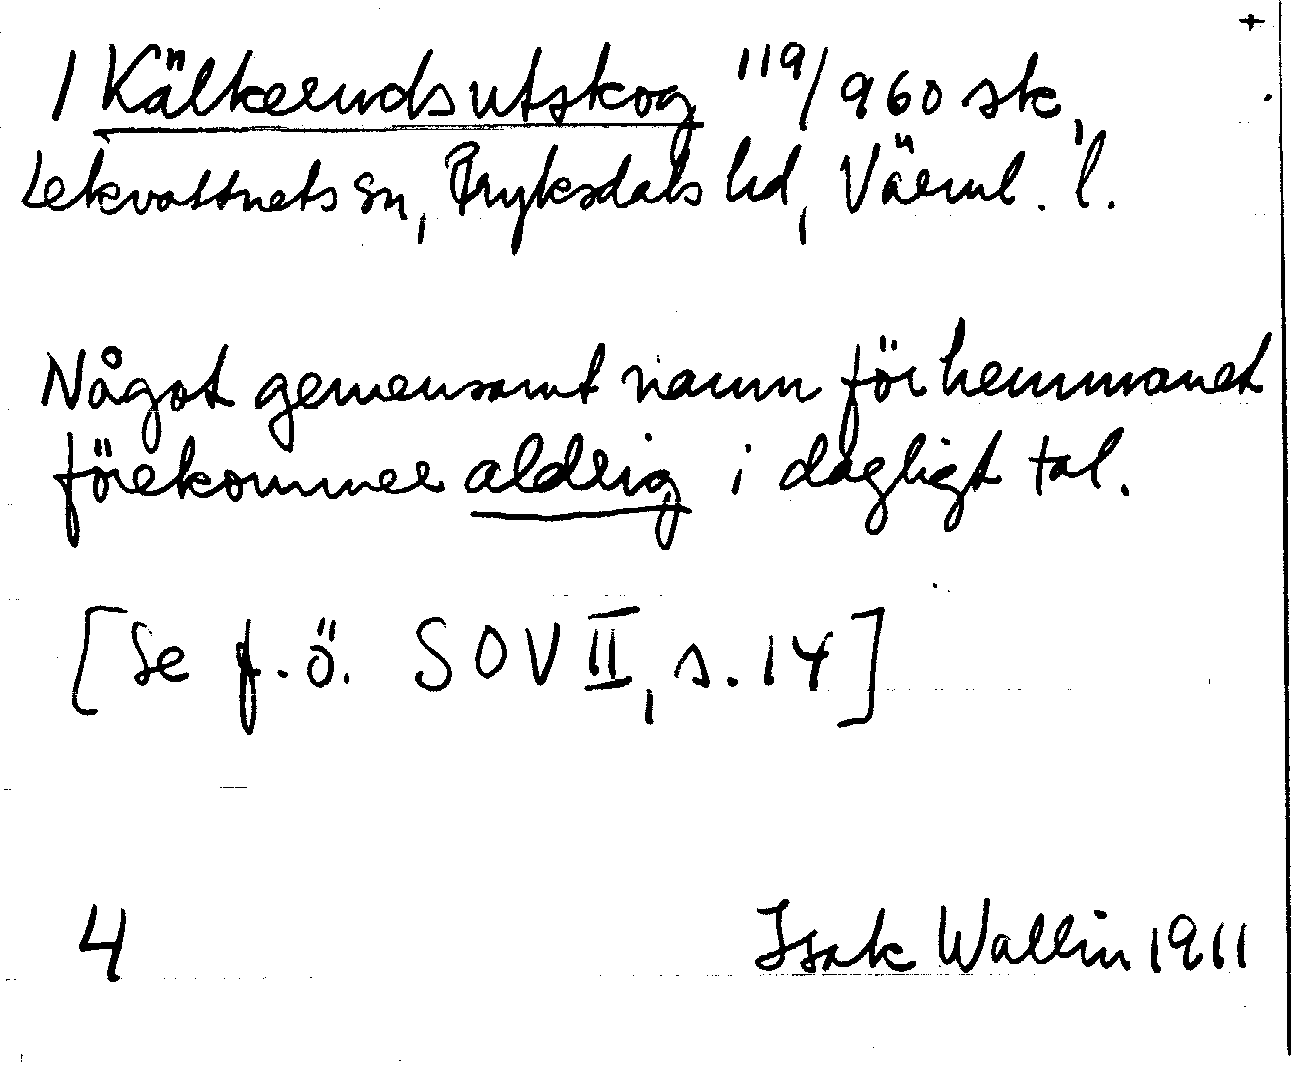 1 Kälkerudsutskog 119/960 sk,
Lekvattnets sn, Fryksdals hd, Värml. l.
Något gemensamt namn för hemmanet
förekommer aldrig i dagligt tal.
[Se f. ö. SOV II, s. 14]
4 Isak Wallin 1911